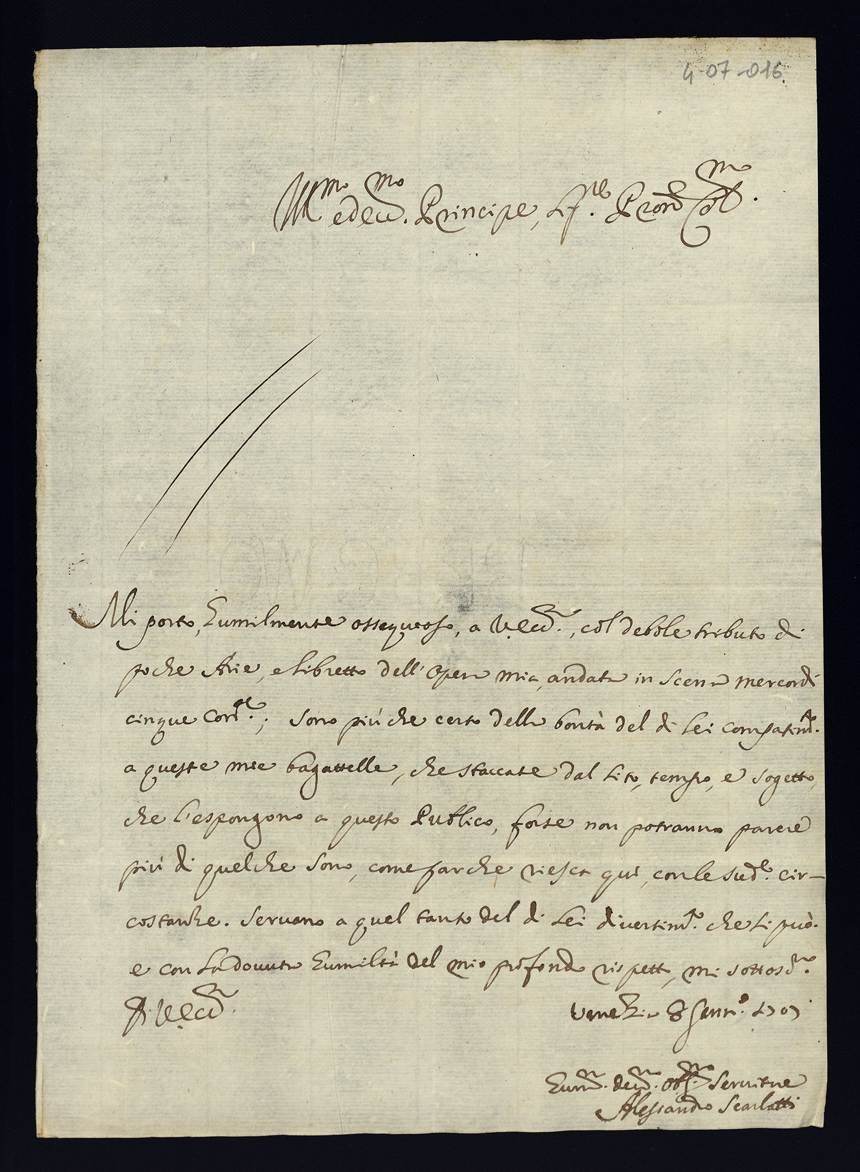 4-07-016
Ill.mo ed ecc.mo Principe, Sig.re Pron.e Col.mo
Mi porto, humilmente ossequioso, a V. Ecc.a, col debole tributo di
poche Arie, e libretto dell'Opera mia, andata in scena mercordì
cinque Corr.te; sono più che certo della bontà del di Lei compatim.to
a queste mie bagattelle, che staccate dal sito, tempo, e sogetto,
che l'espongono a questo Publico, forse non potranno parere
più di quelche sono, come par che riesca qui, con le sud.e cir-
costanze. Servano a quel tanto del di Lei divertim.to che si può.
e con la dovuta humiltà del mio profondo rispetto, mi sottos.o
Di V. Ecc.a
Venezia 8 Genn.o 1707
Hum.mo dev.mo obl.mo Servitore
Alessandro Scarlatti